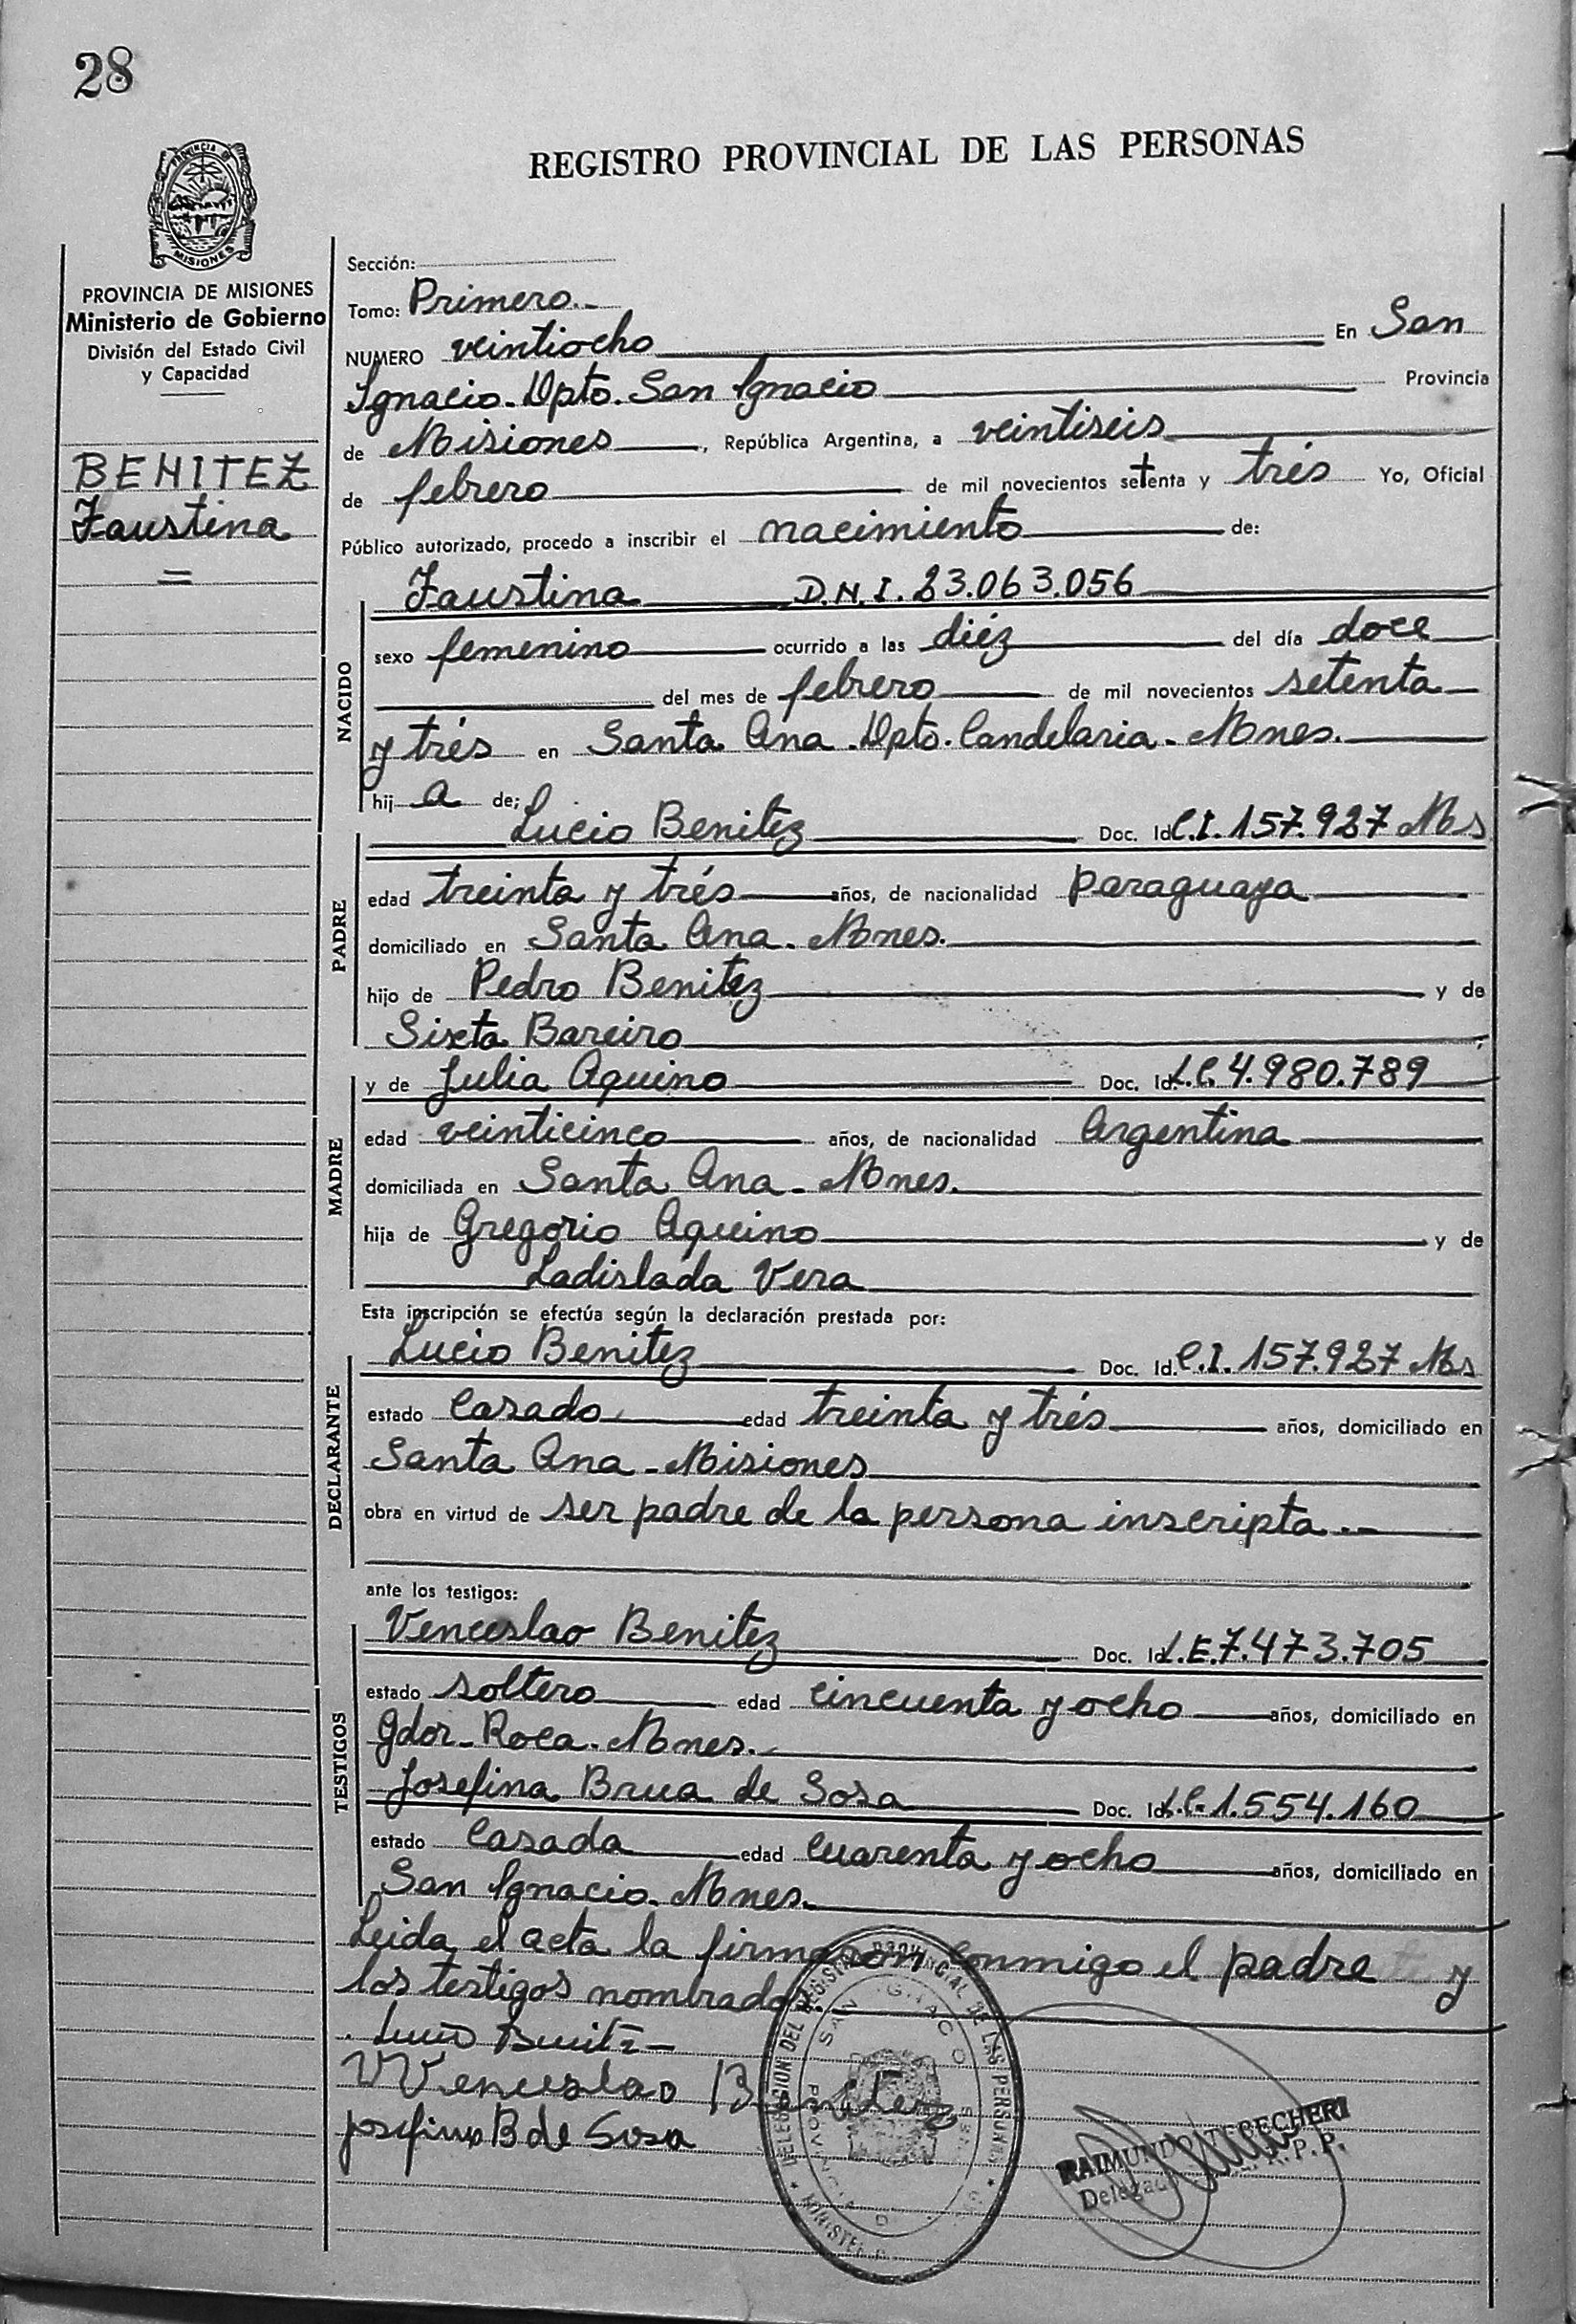 28
REGISTRO PROVINCIAL DE LAS PERSONAS
PROVINCIA DE MISIONES
MISIONES
PROVINCIA DE MISIONES
Ministerio de Gobierno
División del Estado Civil
y Capacidad
BENITEZ
Faustina
Sección:
Tomo: Primero.-
NUMERO veintiocho En San
Ignacio. Dpto. San Ignacio Provincia
de Misiones, República Argentina, a veintiseis
de febrero de mil novecientos setenta y trés Yo, Oficial
Público autorizado, procedo a inscribir el nacimiento de:
NACIDO
Faustina D.N.I. 23.063.056
sexo femenino ocurrido a las diéz del día doce
del mes de febrero de mil novecientos setenta
y trés en Santa Ana. Dpto. Candelaria. Mnes.
hij a de;
PADRE
Lucio Benitez Doc. Id. C.I. 157.927 Ms
edad treinta y trés años, de nacionalidad paraguaya
domiciliado en Santa Ana. Mnes.
hijo de Pedro Benitez y de
Sixta Bareiro
MADRE
y de Julia Aquino Doc. Id. L.C. 4.980.789
edad veinticinco años, de nacionalidad Argentina
domiciliada en Santa Ana. Mnes.
hija de Gregorio Aquino y de
Ladislada Vera
Esta inscripción se efectúa según la declaración prestada por:
DECLARANTE
Lucio Benitez Doc. Id. C.I. 157.927 Ms
estado Casado edad treinta y trés años, domiciliado en
Santa Ana - Misiones
obra en virtud de ser padre de la persona inscripta.-
ante los testigos:
TESTIGOS
Venceslao Benitez Doc. Id. L.E. 7.473.705
estado soltero edad cincuenta y ocho años, domiciliado en
Gdor. Roca. Mnes.
Josefina Brua de Sosa Doc. Id. L.C. 1.554.160
estado Casada edad cuarenta y ocho años, domiciliado en
San Ignacio. Mnes.
Leida el acta la firmaron conmigo el padre y
los testigos nombrados.
Lucio Benitz
Venceslao Benitez
Josefina B de Sosa
DELEGACION DEL REGISTRO PROVINCIAL DE LAS PERSONAS
SAN IGNACIO
RAIMUNDO
R.P.P.